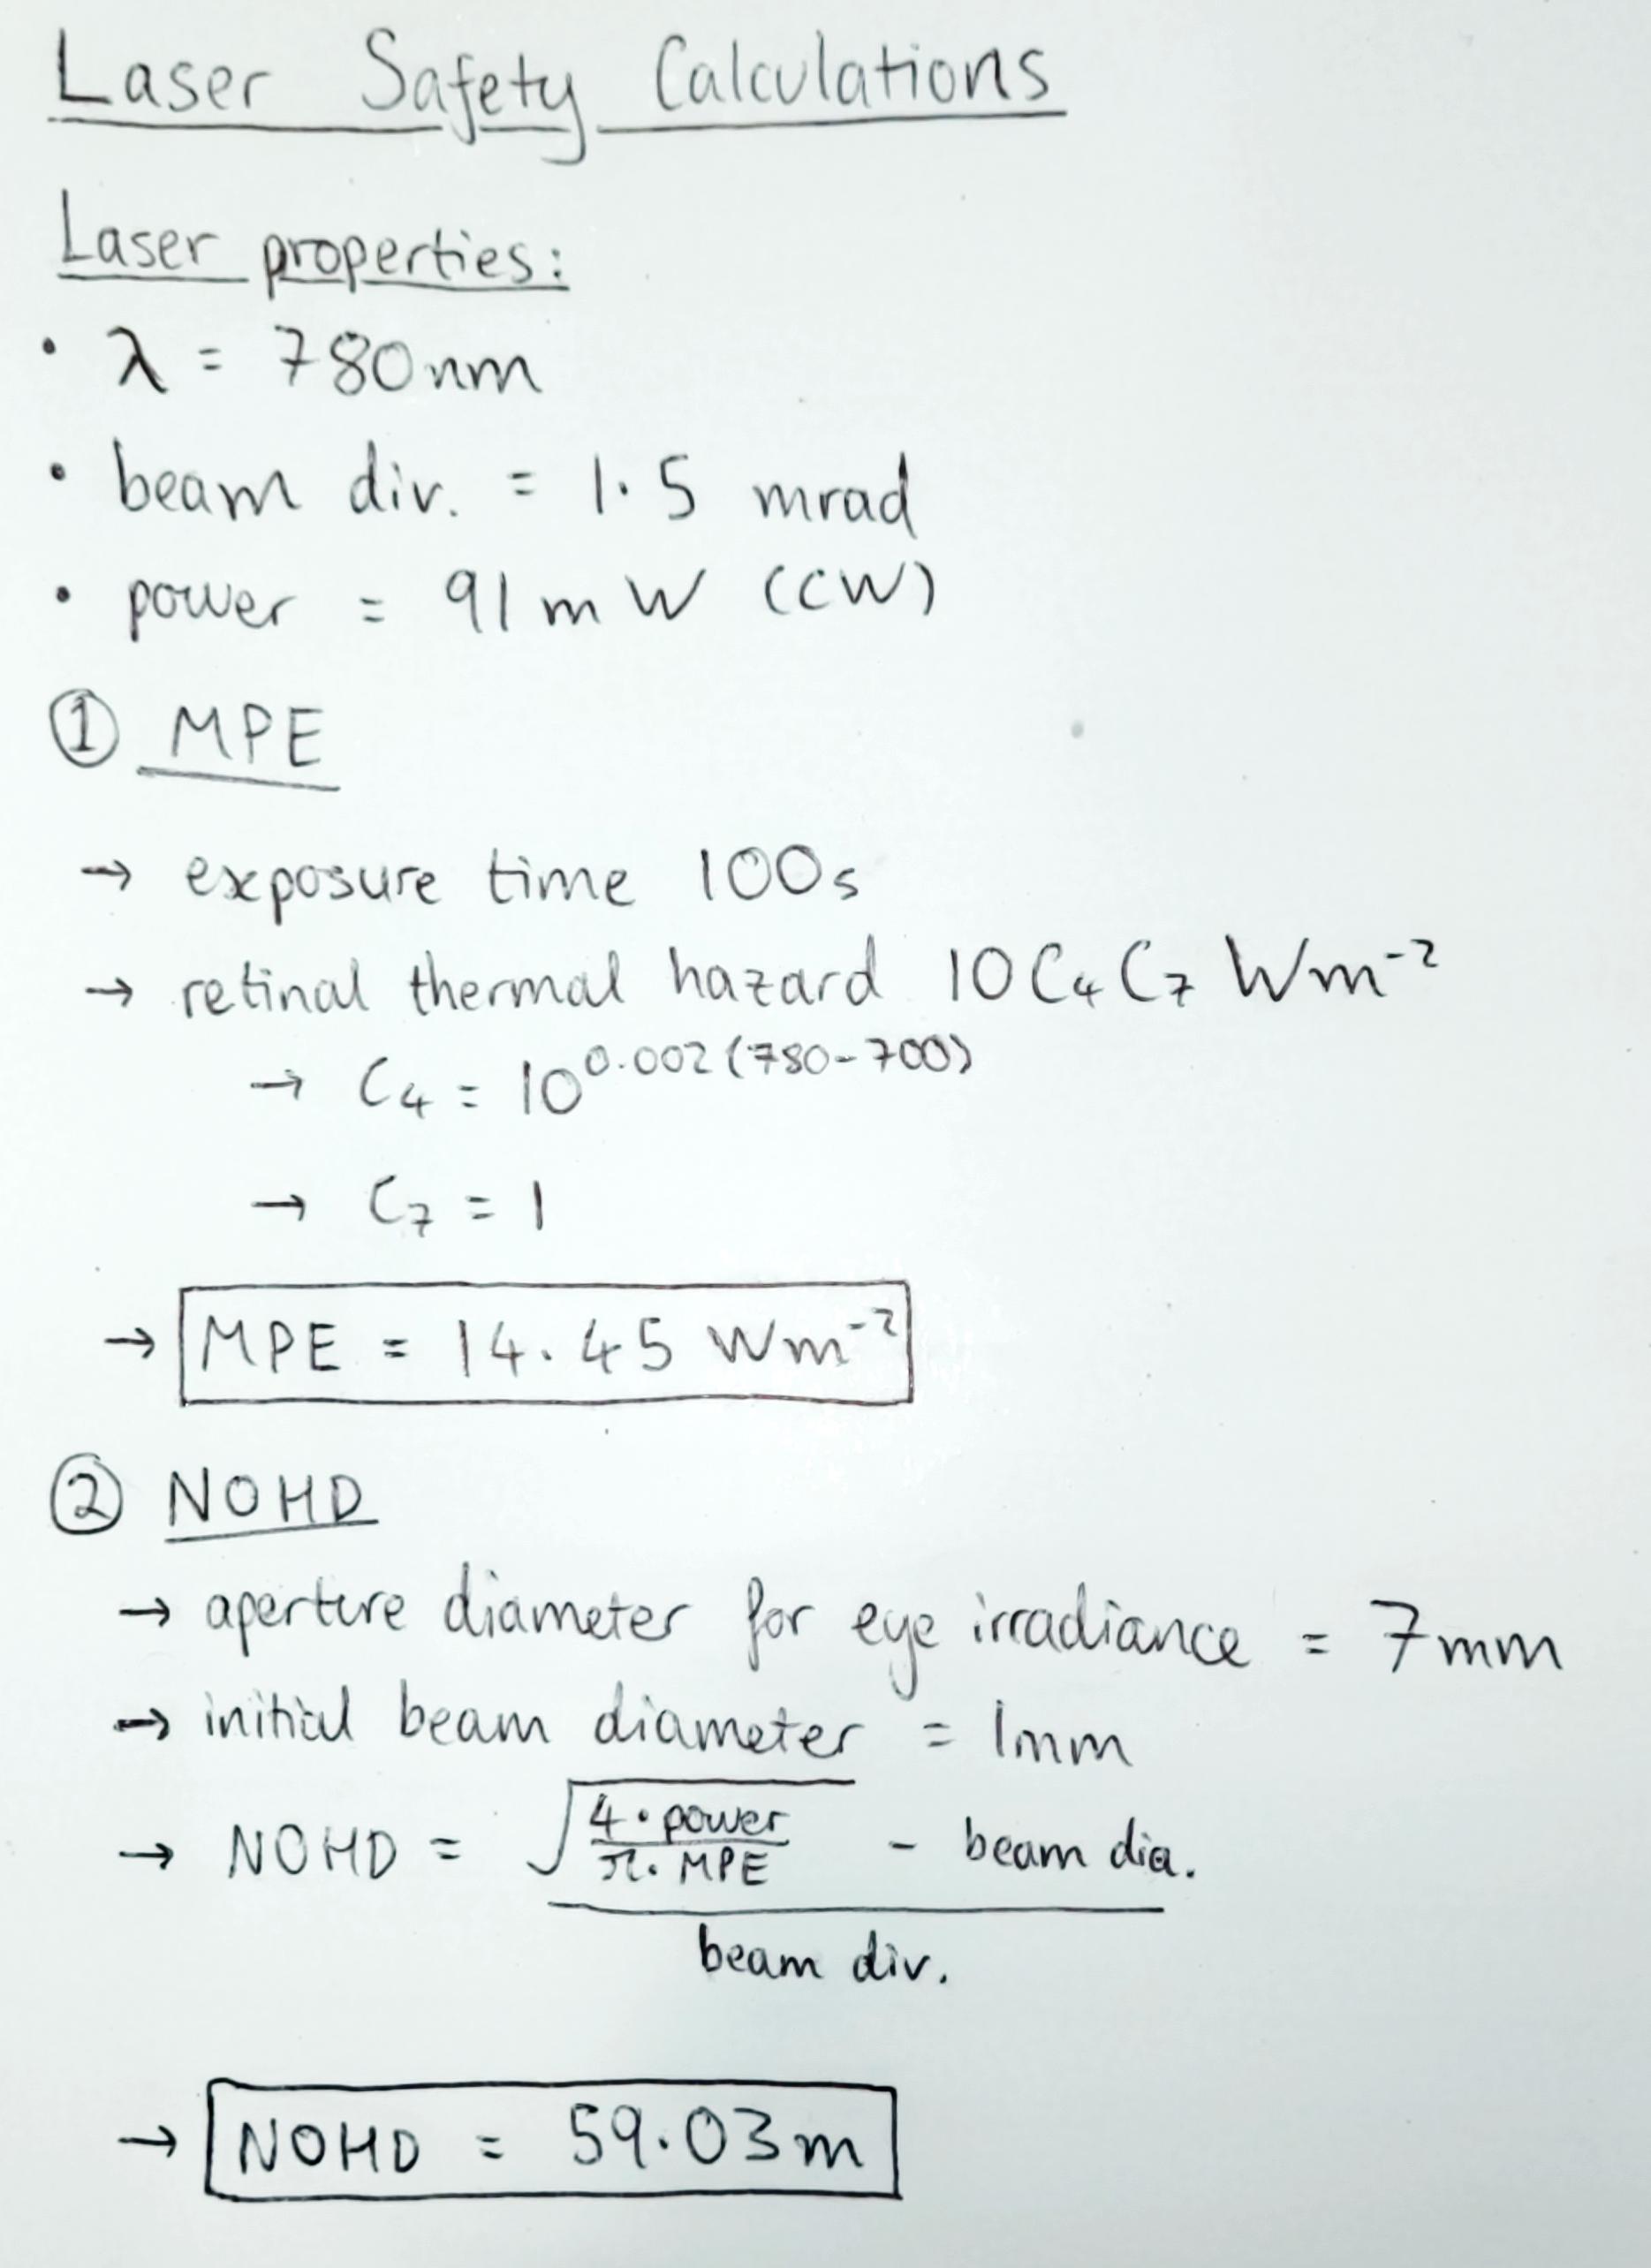 Laser Safety Calculations
Laser properties:
• λ = 780nm
• beam div. = 1.5 mrad
• power = 91mW (CW)
① MPE
→ exposure time 100s
→ retinal thermal hazard 10C₄C₇ Wm⁻²
→ C₄ = 10^0.002(780-700)
→ C₇ = 1
→ MPE = 14.45 Wm⁻²
② NOHD
→ aperture diameter for eye irradiance = 7mm
→ initial beam diameter = 1mm
→ NOHD = (√(4·power / π·MPE) - beam dia.) / beam div.
→ NOHD = 59.03m